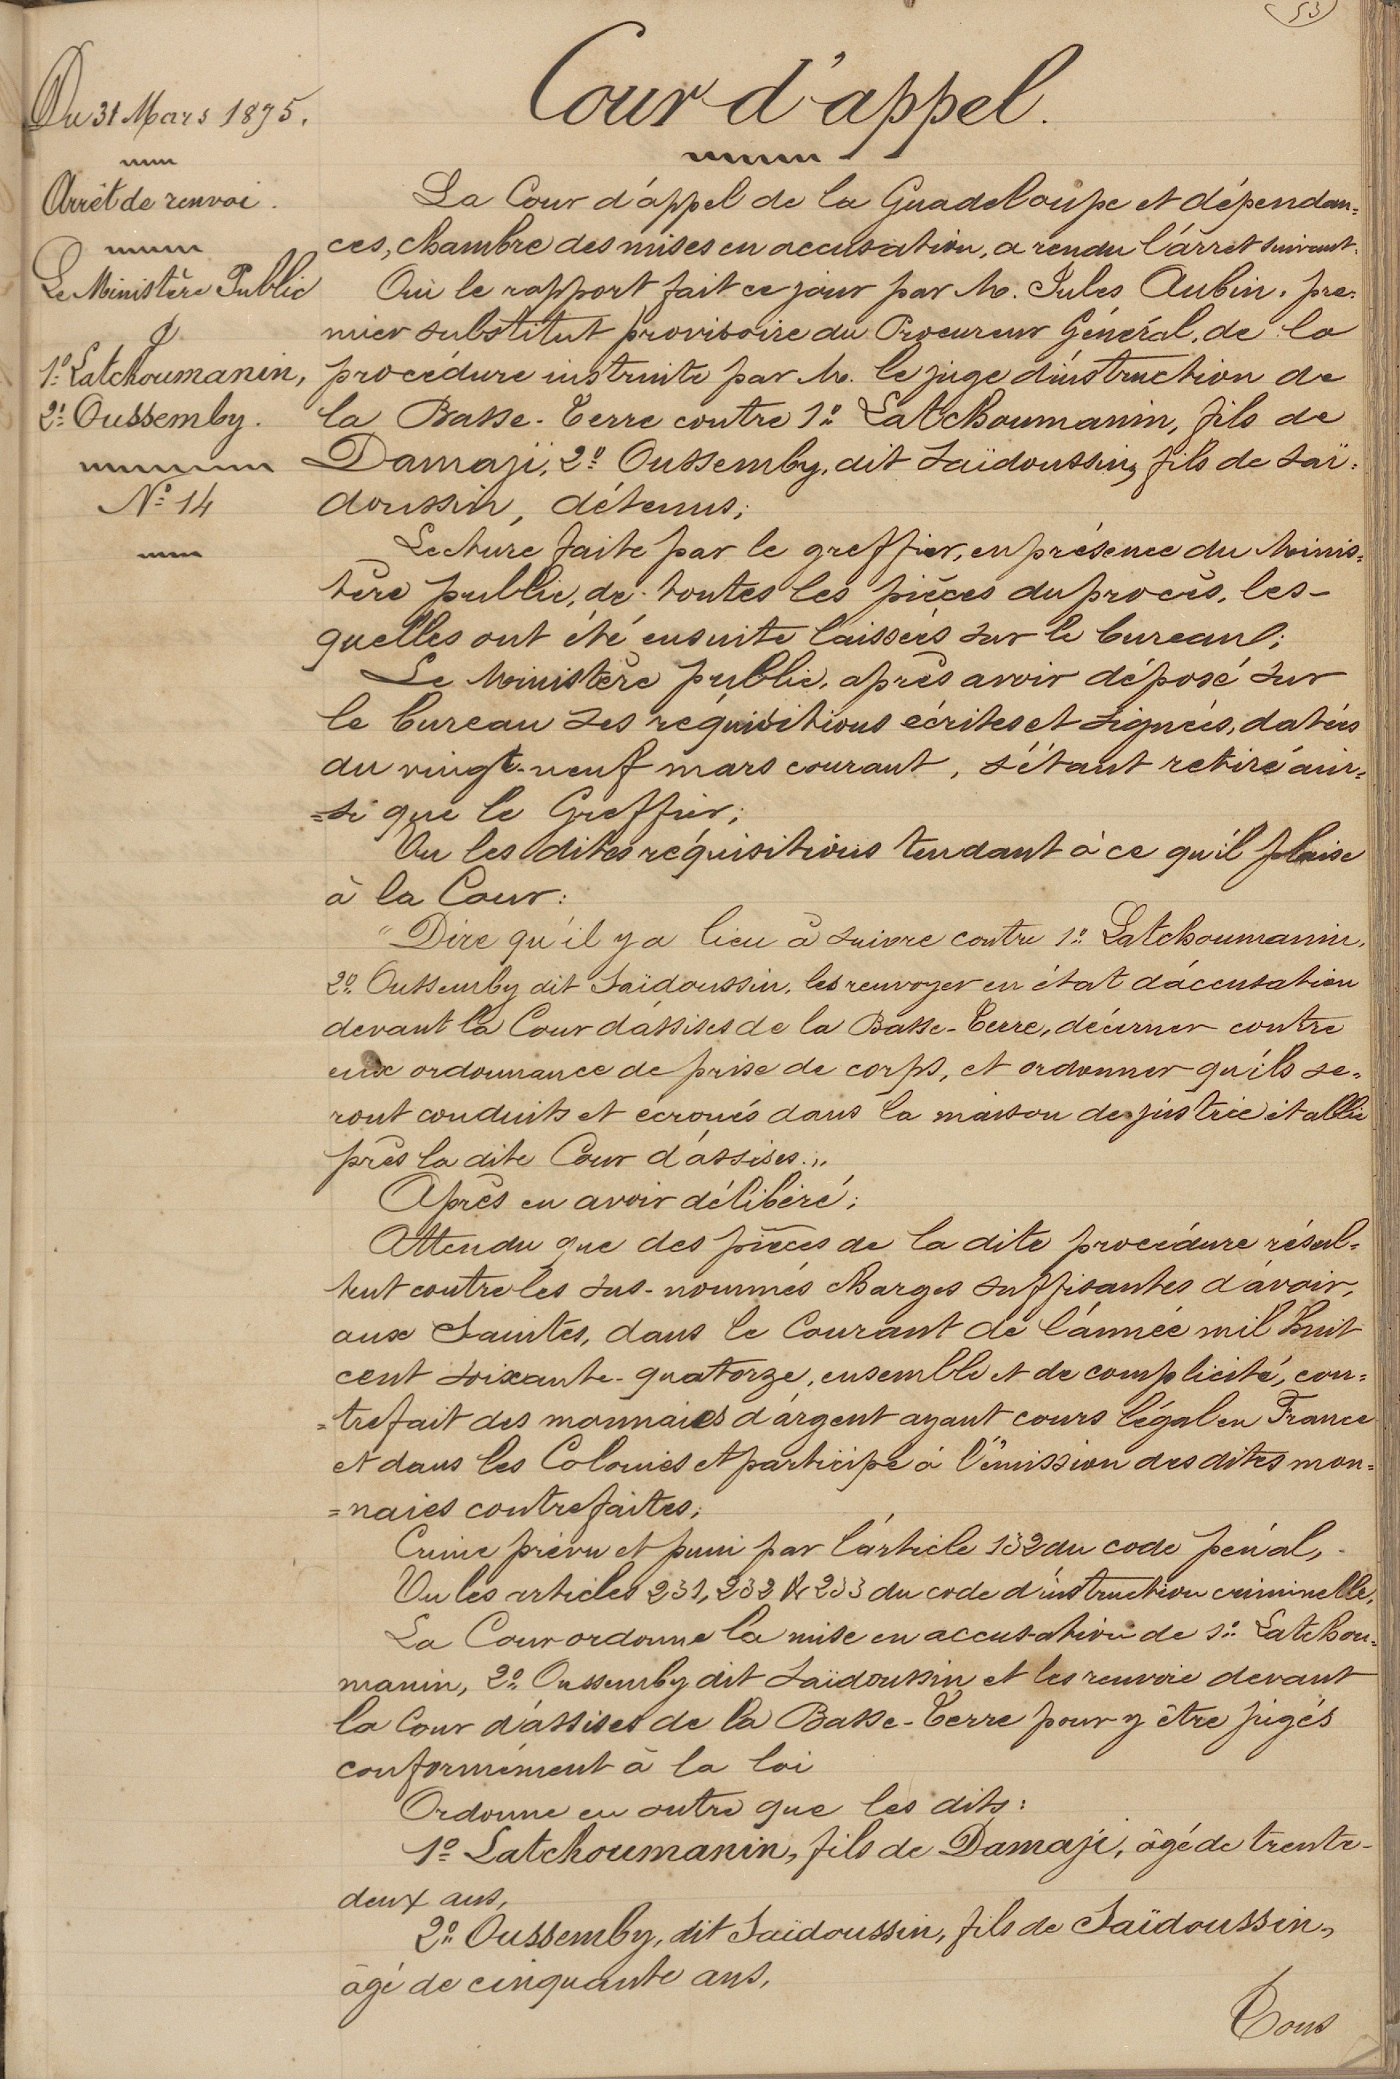 53
Cour d'appel.
Du 31 Mars 1875.
Arrêt de renvoi.
Le Ministère Public
C.
1º Latchoumanin,
2º Oussemby.
Nº 14
La Cour d'appel de la Guadeloupe et dépendan=
ces, chambre des mises en accusation, a rendu l'arrêt suivant.
Oui le rapport fait ce jour par M. Jules Aubin, pre=
mier substitut provisoire du Procureur Général, de la
procédure instruite par M. le juge d'instruction de
la Basse-Terre contre 1º Latchoumanin, fils de
Damaji, 2º Oussemby, dit Saïdoussin, fils de Saï=
doussin, détenus;
Lecture faite par le greffier, en présence du Minis=
tère public, de toutes les pièces du procès, les-
quelles ont été ensuite laissées sur le bureau;
Le Ministère public, après avoir déposé sur
le bureau ses réquisitions écrites et signées, datées
du vingt-neuf mars courant, s'étant retiré ain=
=si que le Greffier;
Vu les dites réquisitions tendant à ce qu'il plaise
à la Cour:
"Dire qu'il y a lieu à suivre contre 1º Latchoumanin,
2º Oussemby dit Saïdoussin, les renvoyer en état d'accusation
devant la Cour d'assises de la Basse-Terre, décerner contre
eux ordonnance de prise de corps, et ordonner qu'ils se=
ront conduits et écroués dans la maison de justice établie
près la dite Cour d'assises."
Après en avoir délibéré;
Attendu que des pièces de la dite procédure résul=
tent contre les sus-nommés charges suffisantes d'avoir,
aux Saintes, dans le Courant de l'année mil huit
cent soixante-quatorze, ensemble et de complicité, con=
=trefait des monnaies d'argent ayant cours légal en France
et dans les Colonies et participé à l'émission des dites mon=
=naies contrefaites;
Crime prévu et puni par l'article 132 du code pénal,
Vu les articles 231, 232 & 233 du code d'instruction criminelle,
La Cour ordonne la mise en accusation de 1º Latchou=
manin, 2º Oussemby dit Saïdoussin et les renvoie devant
la Cour d'assises de la Basse-Terre pour y être jugés
conformément à la loi
Ordonne en outre que les dits:
1º Latchoumanin, fils de Damaji, âgé de trente-
deux ans,
2º Oussemby, dit Saïdoussin, fils de Saïdoussin,
âgé de cinquante ans,
Tous